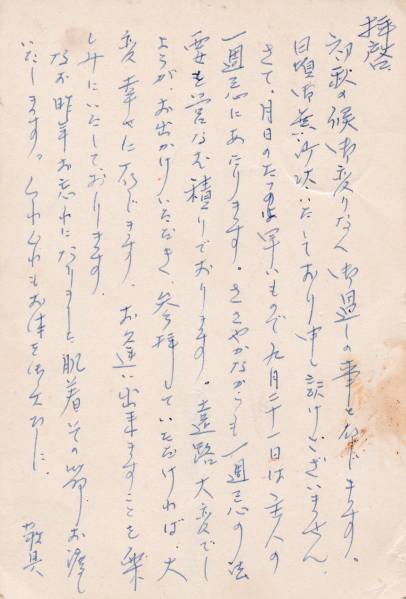 拝啓
初秋の候御変りなく御過しの事と存じます。
日頃御無沙汰いたしており申し訳けございません。
さて、月日のたつのは早いもので九月二十一日は主人の
一週忌にあたります。ささやかながらも一週忌の法
要を営なむ積りでおります。遠路大変でし
ようが、お出かけいただき、参拝していただければ、大
変幸せに存じます。お逢い出来ますことを楽
しみにいたしております。
なお昨年お忘れになりました肌着その節お渡し
いたします。くれぐれもお体を御大切に。
敬具